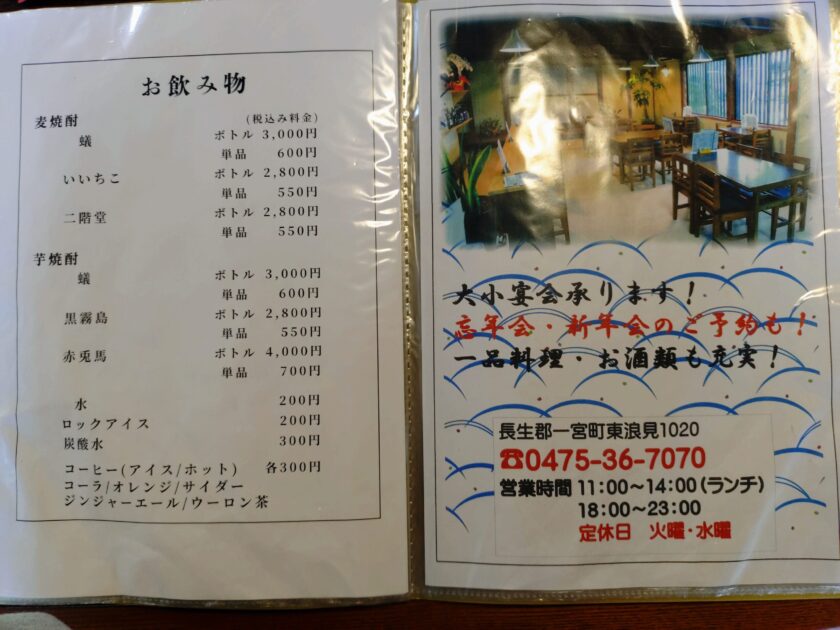 お飲み物
麦焼酎 (税込み料金)
蟻 ボトル 3,000円
単品 600円
いいちこ ボトル 2,800円
単品 550円
二階堂 ボトル 2,800円
単品 550円
芋焼酎
蟻 ボトル 3,000円
単品 600円
黒霧島 ボトル 2,800円
単品 550円
赤兎馬 ボトル 4,000円
単品 700円
水 200円
ロックアイス 200円
炭酸水 300円
コーヒー(アイス/ホット) 各300円
コーラ/オレンジ/サイダー
ジンジャーエール/ウーロン茶
大小宴会承ります!
忘年会・新年会のご予約も!
一品料理・お酒類も充実!
長生郡一宮町東浪見1020
☎0475-36-7070
営業時間 11:00～14:00(ランチ)
18:00～23:00
定休日 火曜・水曜